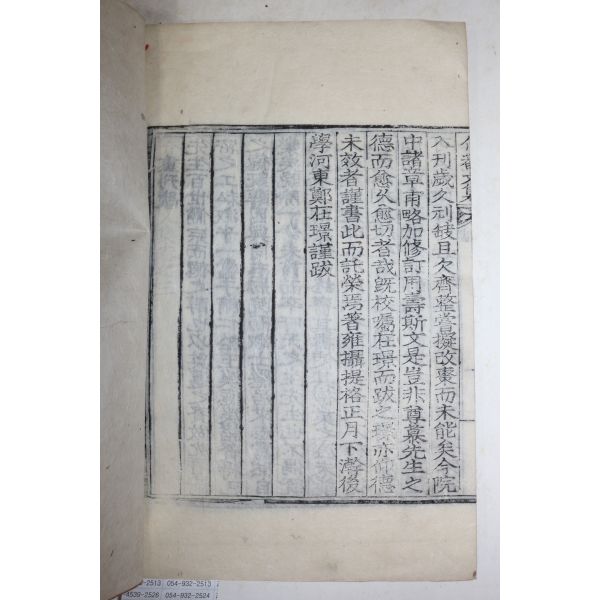 入刊歲久刓缺且欠齊整嘗擬改棗而未能矣今院
中諸章甫略加修訂用壽斯文是豈非尊慕先生之
德而愈久愈切者哉旣校屬在璟而跋之璟亦仰德
未效者謹書此而託榮焉著雍攝提格正月下澣後
學河東鄭在璟謹跋
-2513 054-932-2513
4539-2526 054-932-2524